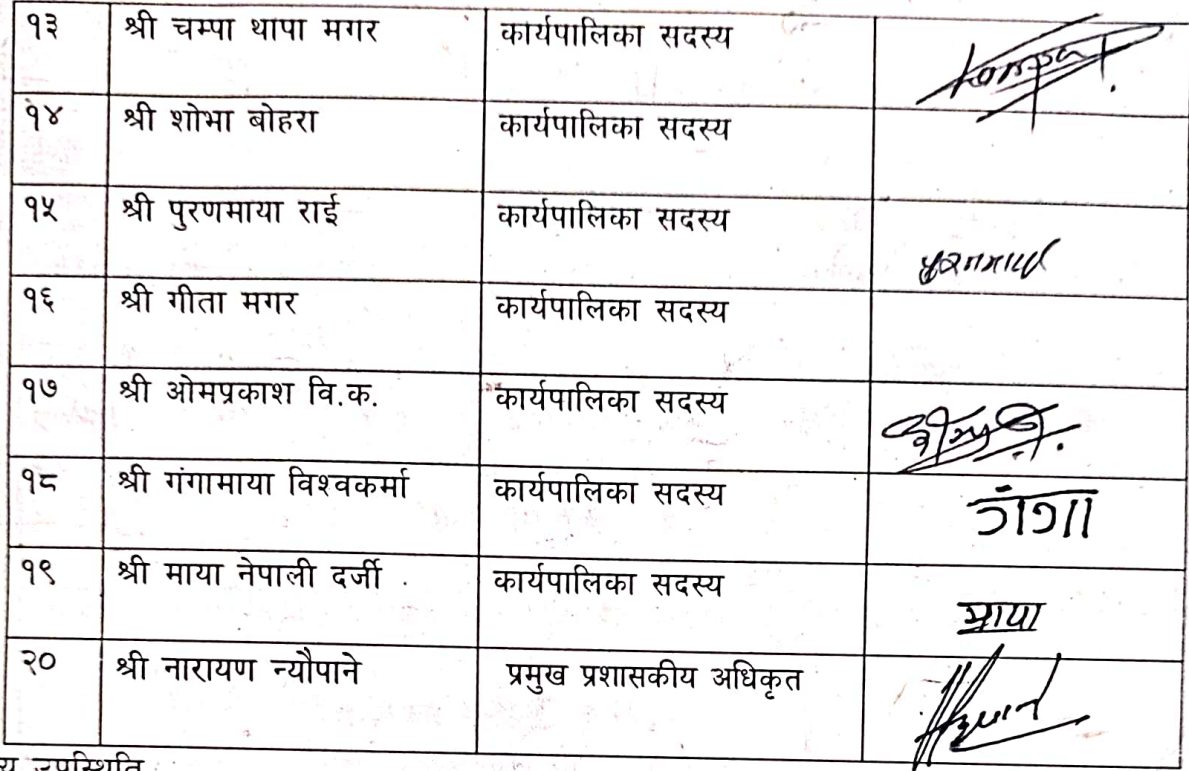 १३ श्री चम्पा थापा मगर कार्यपालिका सदस्य
१४ श्री शोभा बोहरा कार्यपालिका सदस्य
१५ श्री पुरणमाया राई कार्यपालिका सदस्य
१६ श्री गीता मगर कार्यपालिका सदस्य
१७ श्री ओमप्रकाश वि.क. कार्यपालिका सदस्य
१८ श्री गंगामाया विश्वकर्मा कार्यपालिका सदस्य गंगा
१९ श्री माया नेपाली दर्जी कार्यपालिका सदस्य माया
२० श्री नारायण न्यौपाने प्रमुख प्रशासकीय अधिकृत
उपस्थिति